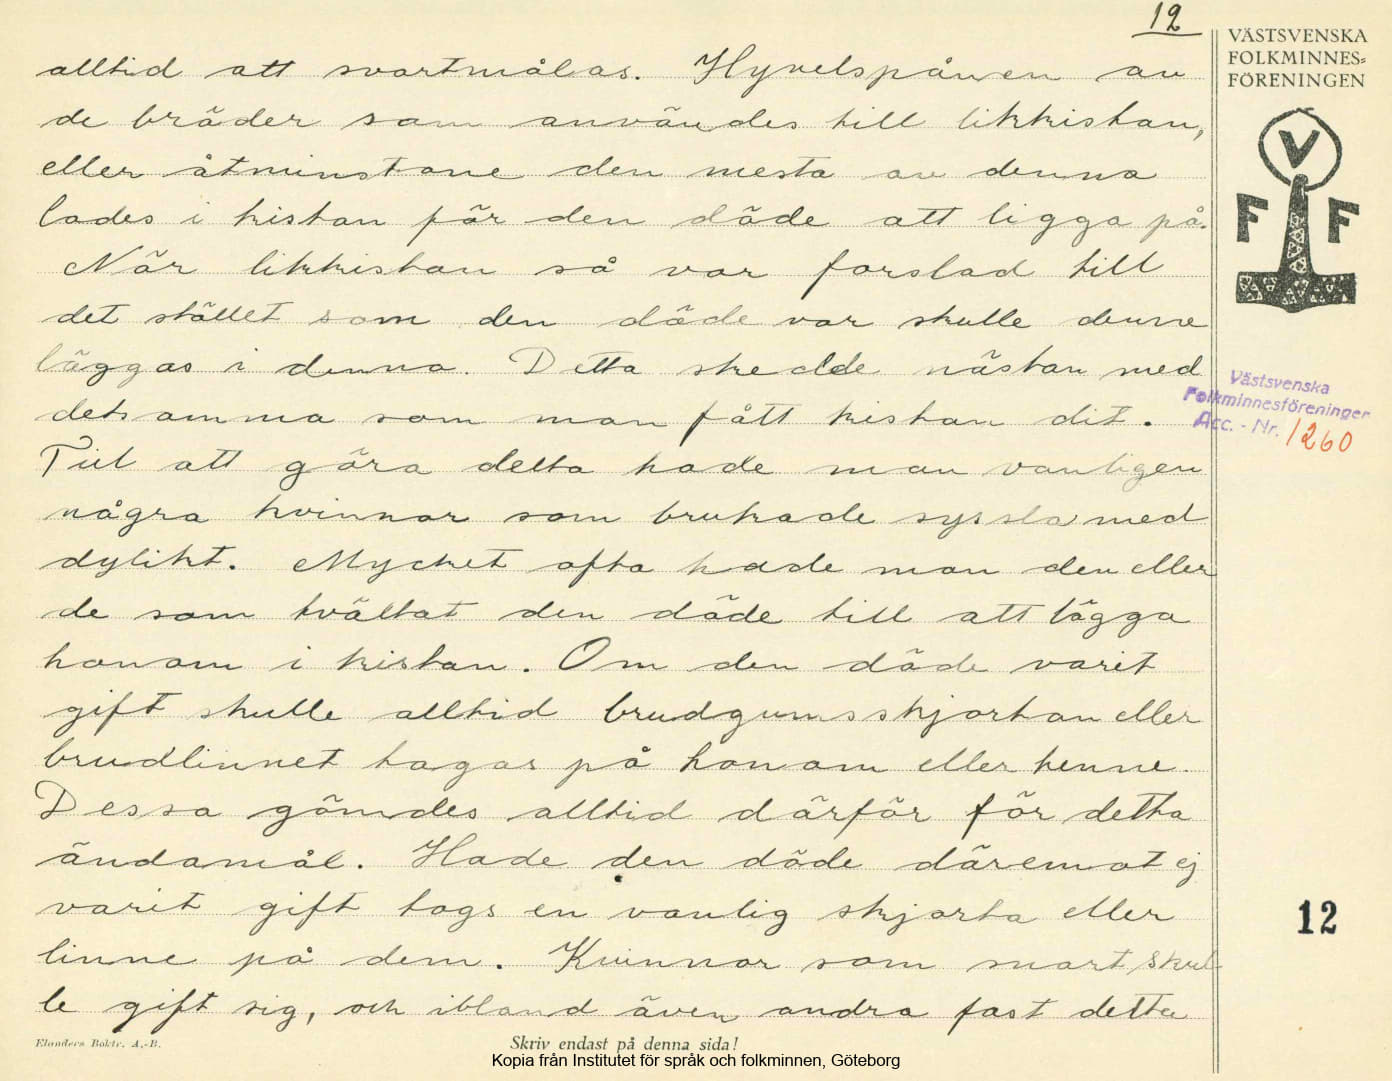 12
VÄSTSVENSKA
FOLKMINNES=
FÖRENINGEN
alltid att svartmålas. Hyvelspånen av
de bräder som användes till likkistan,
eller åtminstone den mesta av denna
lades i kistan för den döde att ligga på.
När likkistan så var forslad till
det stället som den döde var skulle denne
läggas i denna. Detta skedde nästan med
detsamma som man fått kistan dit.
Till att göra detta hade man vanligen
några kvinnor som brukade syssla med
dylikt. Mycket ofta hade man den eller
de som tvättat den döde till att lägga
honom i kistan. Om den döde varit
gift skulle alltid brudgumsskjortan eller
brudlinnet tagas på honom eller henne.
Dessa gömdes alltid därför för detta
ändamål. Hade den döde däremot ej
varit gift togs en vanlig skjorta eller
linne på dem. Kvinnor som snart skul
le gift sig, och ibland även andra fast detta
V
F F
Västsvenska
Folkminnesföreningen
Acc. - Nr. 1260
12
Elanders Boktr. A.-B.
Skriv endast på denna sida!
Kopia från Institutet för språk och folkminnen, Göteborg